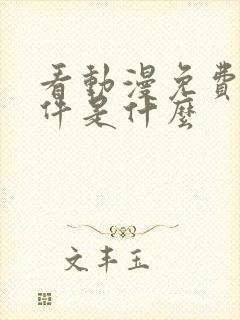 看動漫免費
件是什麼
文丰玉